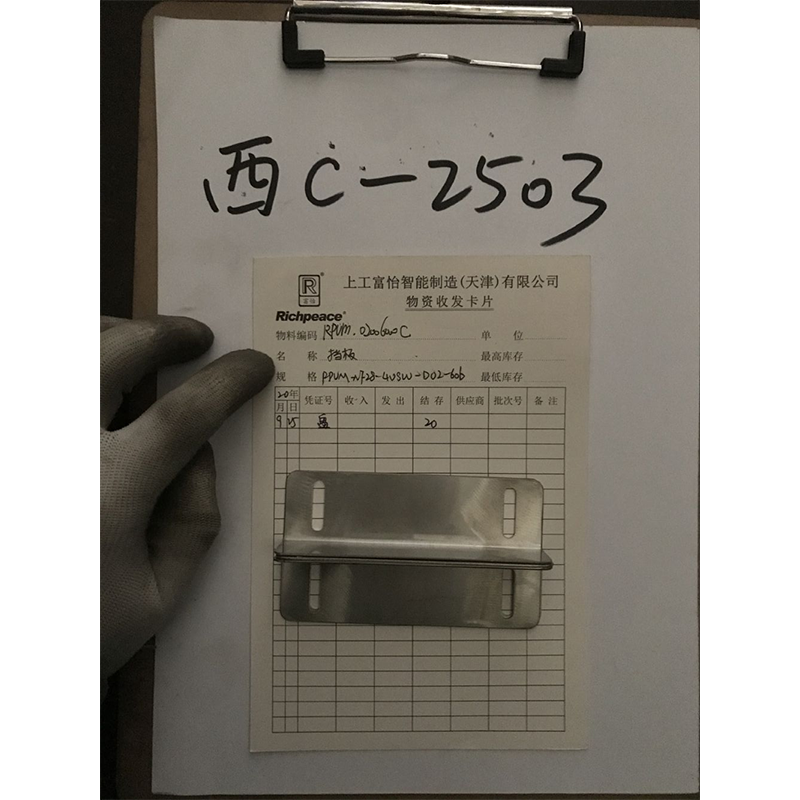 西C-2503
上工富怡智能制造(天津)有限公司
R®
富怡
物资收发卡片
Richpeace®
物料编码 RPUM.0200600C 单位
名称 挡板 最高库存
规格 RPUM-NF28-4USW-D02-606 最低库存
20年 凭证号 收入 发出 结存 供应商 批次号 备注
月 日
9 15 盘 20